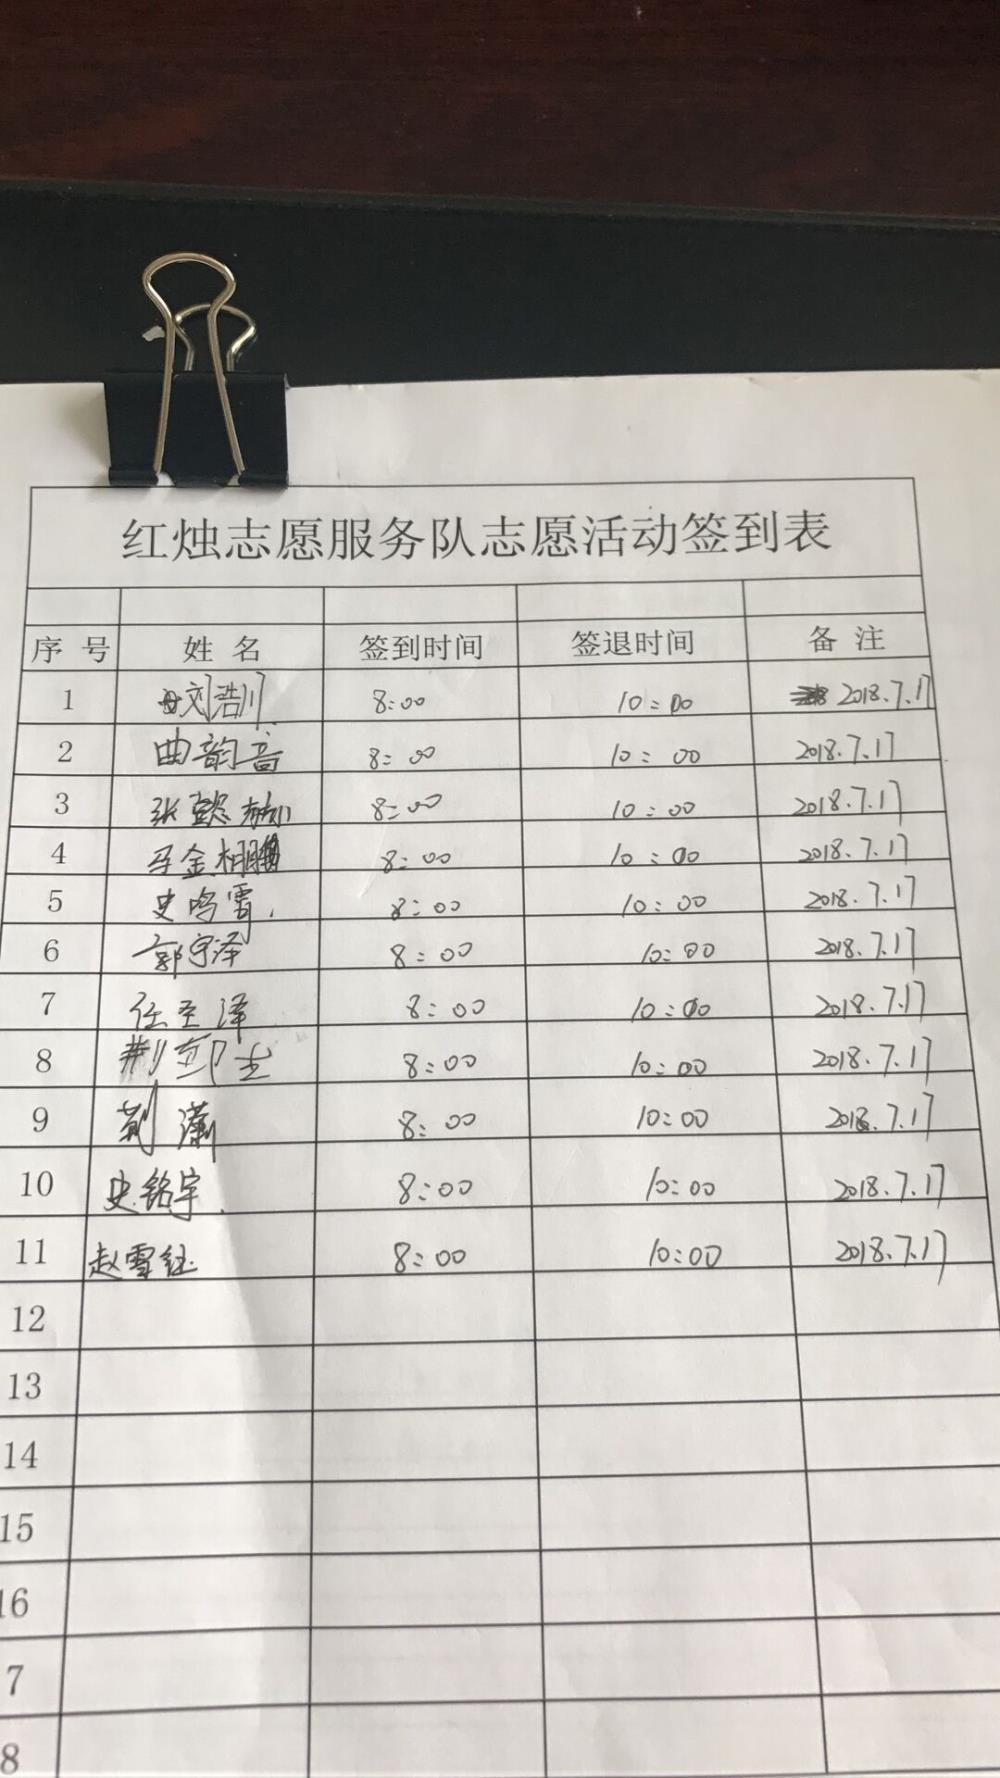 红烛志愿服务队志愿活动签到表
序号 姓名 签到时间 签退时间 备注
1 刘浩川 8:00 10:00 2018.7.17
2 曲韵音 8:00 10:00 2018.7.17
3 张懿 8:00 10:00 2018.7.17
4 金相 8:00 10:00 2018.7.17
5 史鸣雪 8:00 10:00 2018.7.17
6 郭宇泽 8:00 10:00 2018.7.17
7 任圣泽 8:00 10:00 2018.7.17
8 8:00 10:00 2018.7.17
9 潇 8:00 10:00 2018.7.17
10 史铭宇 8:00 10:00 2018.7.17
11 赵雪钰 8:00 10:00 2018.7.17
12
13
14
15
16
7
8